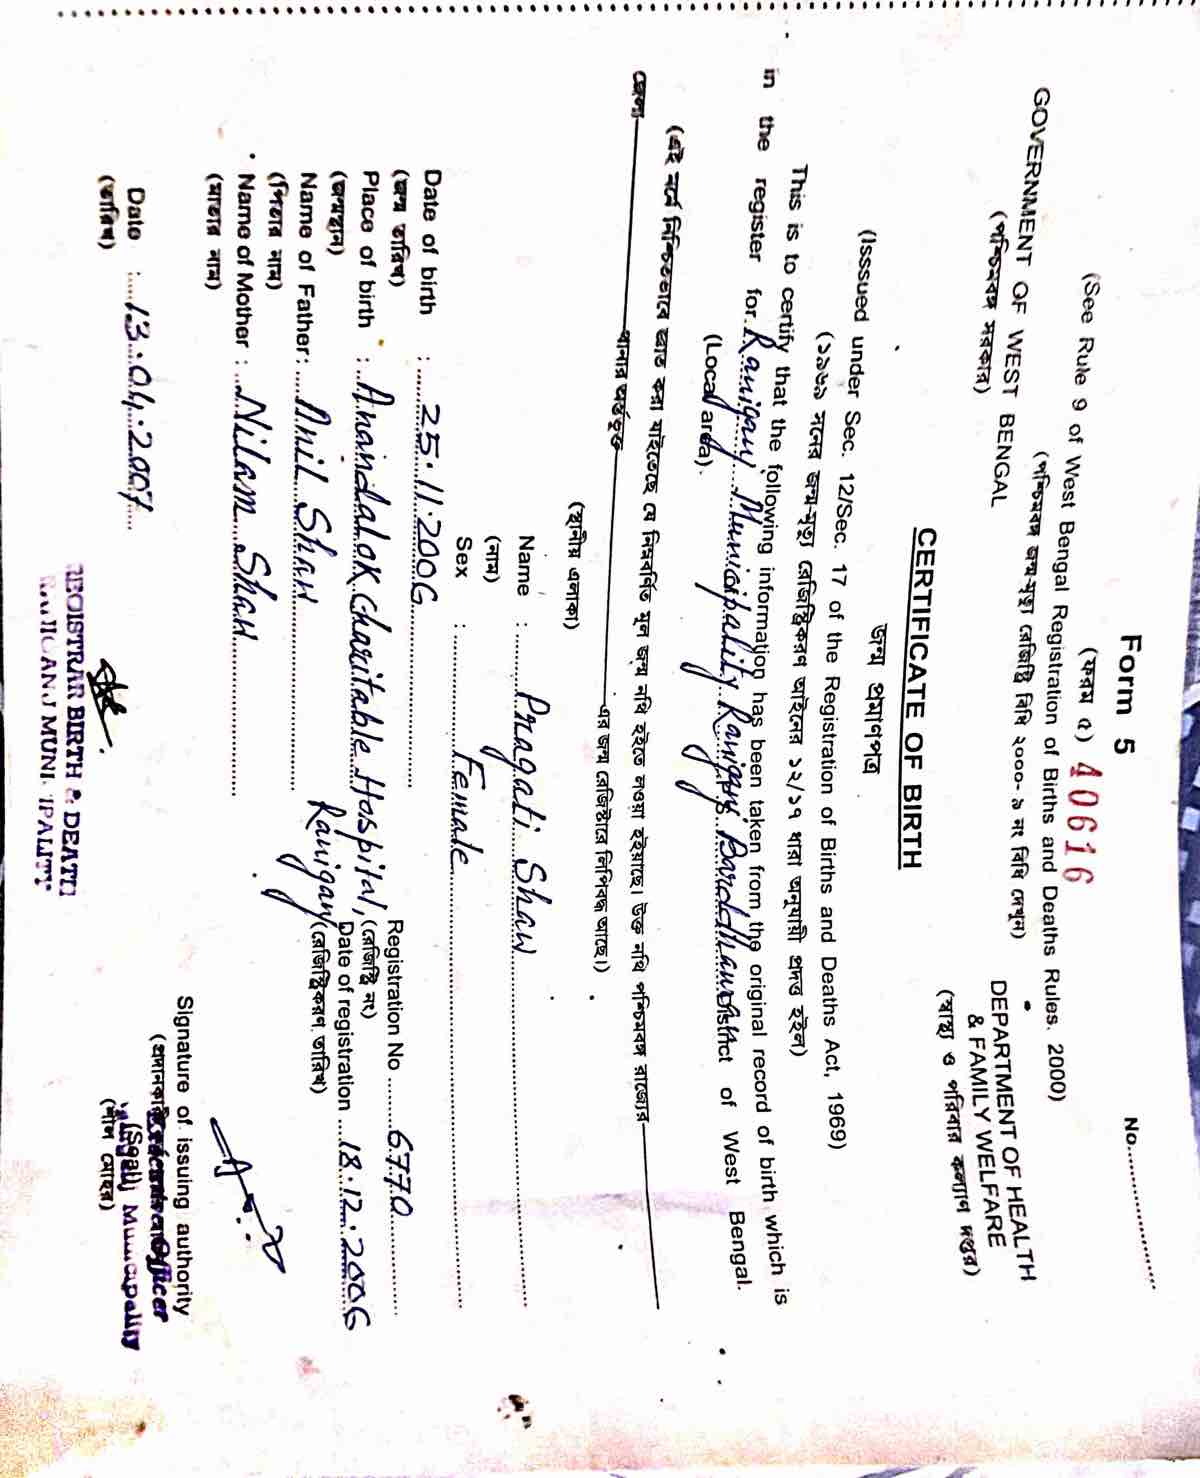 Form 5
No.
(ফরম ৫) 40616
(See Rule 9 of West Bengal Registration of Births and Deaths Rules. 2000)
(পশ্চিমবঙ্গ জন্ম-মৃত্যু রেজিষ্ট্রি বিধি ২০০০- ৯ নং বিধি দেখুন)
GOVERNMENT OF WEST BENGAL
(পশ্চিমবঙ্গ সরকার)
DEPARTMENT OF HEALTH
& FAMILY WELFARE
(স্বাস্থ্য ও পরিবার কল্যাণ দপ্তর)
CERTIFICATE OF BIRTH
জন্ম প্রমাণপত্র
(Isssued under Sec. 12/Sec. 17 of the Registration of Births and Deaths Act, 1969)
(১৯৬৯ সনের জন্ম-মৃত্যু রেজিষ্ট্রিকরণ আইনের ১২/১৭ ধারা অনুযায়ী প্রদত্ত হইল)
This is to certify that the following information has been taken from the original record of birth which is
in the register for Raniganj Municipality Raniganj Barddhaman District of West Bengal.
(Local area).
(এই মর্মে নিশ্চিতভাবে জ্ঞাত করা যাইতেছে যে নিম্নবর্ণিত মূল জন্ম নথি হইতে লওয়া হইয়াছে। উক্ত নথি পশ্চিমবঙ্গ রাজ্যের
জেলা থানার অর্ন্তভুক্ত এর জন্ম রেজিষ্টারে লিপিবদ্ধ আছে।)
(স্থানীয় এলাকা)
Name : Pragati Shaw
(নাম)
Sex : Female
Date of birth : 25.11.2006
(জন্ম তারিখ)
Registration No 6770
(রেজিষ্ট্রি নং)
Place of birth : Anandalok Charitable Hospital, Raniganj
(জন্মস্থান)
Date of registration 18.12.2006
(রেজিষ্ট্রিকরণ তারিখ)
Name of Father: Anil Shaw
(পিতার নাম)
Name of Mother : Nilam Shaw
(মাতার নাম)
Signature of issuing authority
Executive Officer
(Seal)
Municipality
(শীল মোহর)
Date : 13.04.2007
(তারিখ)
REGISTRAR BIRTH & DEATH
RANIGANJ MUNICIPALITY